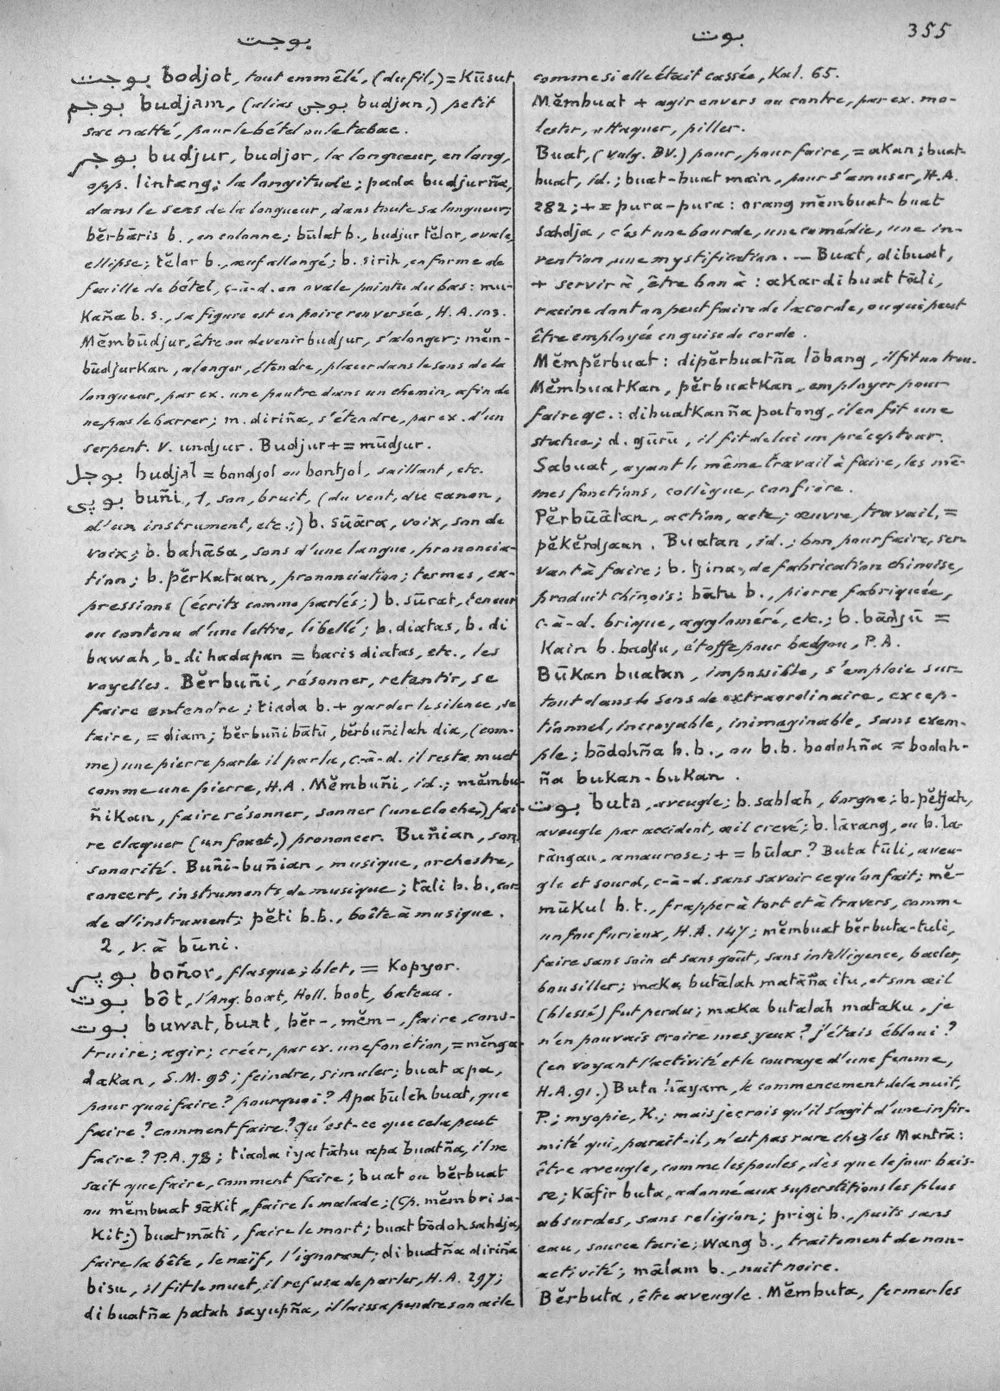 بوجت
بوت
355
بوجت bodjot, tout emmêlé, (du fil,) = Kūsut
بوجم budjam, (alias بوجن budjan,) petit
sac natté, pour le bétel ou le tabac.
بوجر budjur, budjor, la longueur, en long,
opp. lintang; la longitude; pada budjurña,
dans le sens de la longueur, dans toute sa longueur;
bĕrbāris b., en colonne; būlat b., budjur tĕlor, ovale,
ellipse; tĕlor b., œuf allongé; b. sirih, en forme de
feuille de bétel, c-à-d. en ovale pointu du bas: mu-
Kaña b. s., sa figure est en poire renversée, H.A. 103.
Mĕmbūdjur, être ou devenir budjur, s'alonger; mĕm-
būdjurKan, alonger, étendre, placer dans le sens de la
longueur, par ex. une poutre dans un chemin, afin de
ne pas le barrer; m. diriña, s'étendre, par ex. d'un
serpent. V. undjur. Budjur + = mūdjur.
بوجل budjal = bondjol ou bontjol, saillant, etc.
بوڽي buñi, 1, son, bruit, (du vent, du canon,
d'un instrument, etc.;) b. sūāra, voix, son de
voix; b. bahāsa, sons d'une langue, prononcia-
tion; b. pĕrKataan, prononciation; termes, ex-
pressions (écrits comme parlés;) b. sūrat, teneur
ou contenu d'une lettre, libellé; b. diatas, b. di
bawah, b. di hadapan = baris diatas, etc., les
voyelles. Bĕrbuñi, résonner, retentir, se
faire entendre; tiada b. + garder le silence, se
taire, = diam; bĕrbuñi bātū, bĕrbuñilah dia, (com-
me) une pierre parle il parla, c-à-d. il resta muet
comme une pierre, H.A. Mĕmbuñi, id.; mĕmbu-
ñiKan, faire résonner, sonner (une cloche,) fai-
re claquer (un fouet,) prononcer. Buñian, son,
sonorité. Buñi-buñian, musique, orchestre,
concert, instruments de musique; tāli b.b., cor-
de d'instrument; pĕti b.b., boîte à musique.
2, v. à būni.
بوڽر boñor, flasque; blet, = Kopyor.
بوت bôt, l'Ang. boat, Holl. boot, bateau.
بوت buwat, buat, bĕr-, mĕm-, faire, cons-
truire; agir; créer, par ex. une fonction, = mĕnga-
daKan, S.M. 95; feindre, simuler; buat apa,
pour quoi faire? pourquoi? Apa būleh buat, que
faire? comment faire? Qu'est-ce que cela peut
faire? P.A. 78; tiada iya tāhu apa buatña, il ne
sait que faire, comment faire; buat ou bĕrbuat
ou mĕmbuat sāKit, faire le malade; (Cp. mĕmbri sa-
Kit;) buat māti, faire le mort; buat bōdoh sahdja,
faire la bête, le naïf, l'ignorant; di buatña diriña
bisu, il fit le muet, il refusa de parler, H.A. 297;
di buatña patah sayupña, il laissa pendre son aile
comme si elle était cassée, Kal. 65.
Mĕmbuat + agir envers ou contre, par ex. mo-
lester, attaquer, piller.
Buat, (vulg. BV.) pour, pour faire, = aKan; buat-
buat, id.; buat-buat main, pour s'amuser, H.A.
282; + = pura-pura: orang mĕmbuat-buat
sahdja, c'est une bourde, une comédie, une in-
vention, une mystification. — Buat, dibuat,
+ servir à, être bon à: aKar di buat tāli,
racine dont on peut faire de la corde, ou qui peut
être employée en guise de corde.
Mĕmpĕrbuat: dipĕrbuatña lōbang, il fit un trou.
MĕmbuatKan, pĕrbuatKan, employer pour
faire qc.: dibuatKanña patong, il en fit une
statue; d. gūrū, il fit de lui un précepteur.
Sabuat, ayant le même travail à faire, les mê-
mes fonctions, collègue, confrère.
Pĕrbūātan, action, acte; œuvre, travail, =
pĕKĕrdjaan. Buatan, id.; bon pour faire, ser-
vant à faire; b. tjina, de fabrication chinoise,
produit chinois: bātu b., pierre fabriquée,
c-à-d. brique, aggloméré, etc.; b. bādjū =
Kain b. badju, étoffe pour badjou, P.A.
BūKan buatan, impossible, s'emploie sur-
tout dans le sens de extraordinaire, excep-
tionnel, incroyable, inimaginable, sans exem-
ple; bōdohña b.b., ou b.b. bodohña = bodoh-
ña buKan-buKan.
بوت buta, aveugle; b. sablah, borgne; b. pĕtjah,
aveugle par accident, œil crevé; b. lārang, ou b. la-
rāngan, amaurose; + = būlar? Buta tūli, aveu-
gle et sourd, c-à-d. sans savoir ce qu'on fait; mĕ-
mūKul b.t., frapper à tort et à travers, comme
un fou furieux, H.A. 147; mĕmbuat bĕrbuta-tuli,
faire sans soin et sans goût, sans intelligence, bacler,
bousiller; maKa butālah matāña itu, et son œil
(blessé) fut perdu; maKa butalah mataKu, je
n'en pouvais croire mes yeux? j'étais ébloui?
(en voyant l'activité et le courage d'une femme,
H.A. 91.) Buta āyam, le commencement de la nuit,
P.; myopie, K.; mais je crois qu'il s'agit d'une infir-
mité qui, paraît-il, n'est pas rare chez les Mantrā:
être aveugle, comme les poules, dès que le jour bais-
se; Kāfir buta, adonné aux superstitions les plus
absurdes, sans religion; prigi b., puits sans
eau, source tarie; wang b., traitement de non-
activité; mālam b., nuit noire.
Bĕrbuta, être aveugle. Mĕmbuta, fermer les